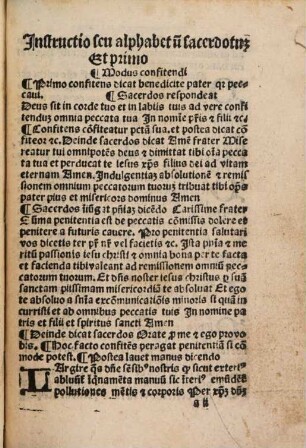 Instructio seu alphabetū sacerdotuꝫ
Et primo
¶ Modus confitendi
¶ Primo confitens dicat benedicite pater qꝛ pec
caui. ¶ Sacerdos respondeat
Deus sit in corde tuo et in labiis tuis ad vere confi
tenduꝫ omnia peccata tua In nomīe pr̄is ⁊ filii ⁊cꝭ
¶ Confitens cōfiteatur pctā sua. et postea dicat cō
fiteor ⁊c. Deinde sacerdos dicat Amē frater Mise
reatur tui omnipotēs deus ⁊ dimittat tibi oīa pecca
ta tua et perducat te Iesus xp̄s filius dei ad vitam
eternam Amen. Indulgentiaꝫ absolutionē ⁊ remis
sionem omnium peccatorum tuoruꝫ tribuat tibi oīps
pater pius et misericors dominus Amen
¶ Sacerdos iniūg it pn̄iaꝫ dicēdo Carissime frater
Summa penitentia est de peccatis cōmissis dolere et
penitere a futuris cauere. Pro penitentia salutari
vos dicetis ter pr̄ nr̄ vel facietis ⁊c. Ista pn̄ia ⁊ me
ritū passionis iesu christi ⁊ omnia bona per te facta
et facienda tibi valeant ad remissionem omniū pec
catorum tuorum. Et dn̄s noster iesus christus ꝑ suā
sanctam piissimam misericordiā te absoluat Et ego
te absoluo a sn̄ia excōmunicatiōis minoris si quā in
curristi et ab omnibus peccatis tuis In nomine pa
tris et filii et spiritus sancti Amen
¶ Deinde dicat sacerdos Orate ꝓ me ⁊ ego pro vo
bis. ¶ Hoc facto confitēs peragat penitentiā si cō
mode potest. ¶ Postea lauet manus dicendo
LArgire qs dn̄e sēsibꝰ nostris ꝙ sicut exteriꝰ
abluūt īqnamēta manuū sic īteriꝰ emūdēt
pollutiones mētis ⁊ corporis Per xp̄ꝫ dn̄ꝫ
a ii